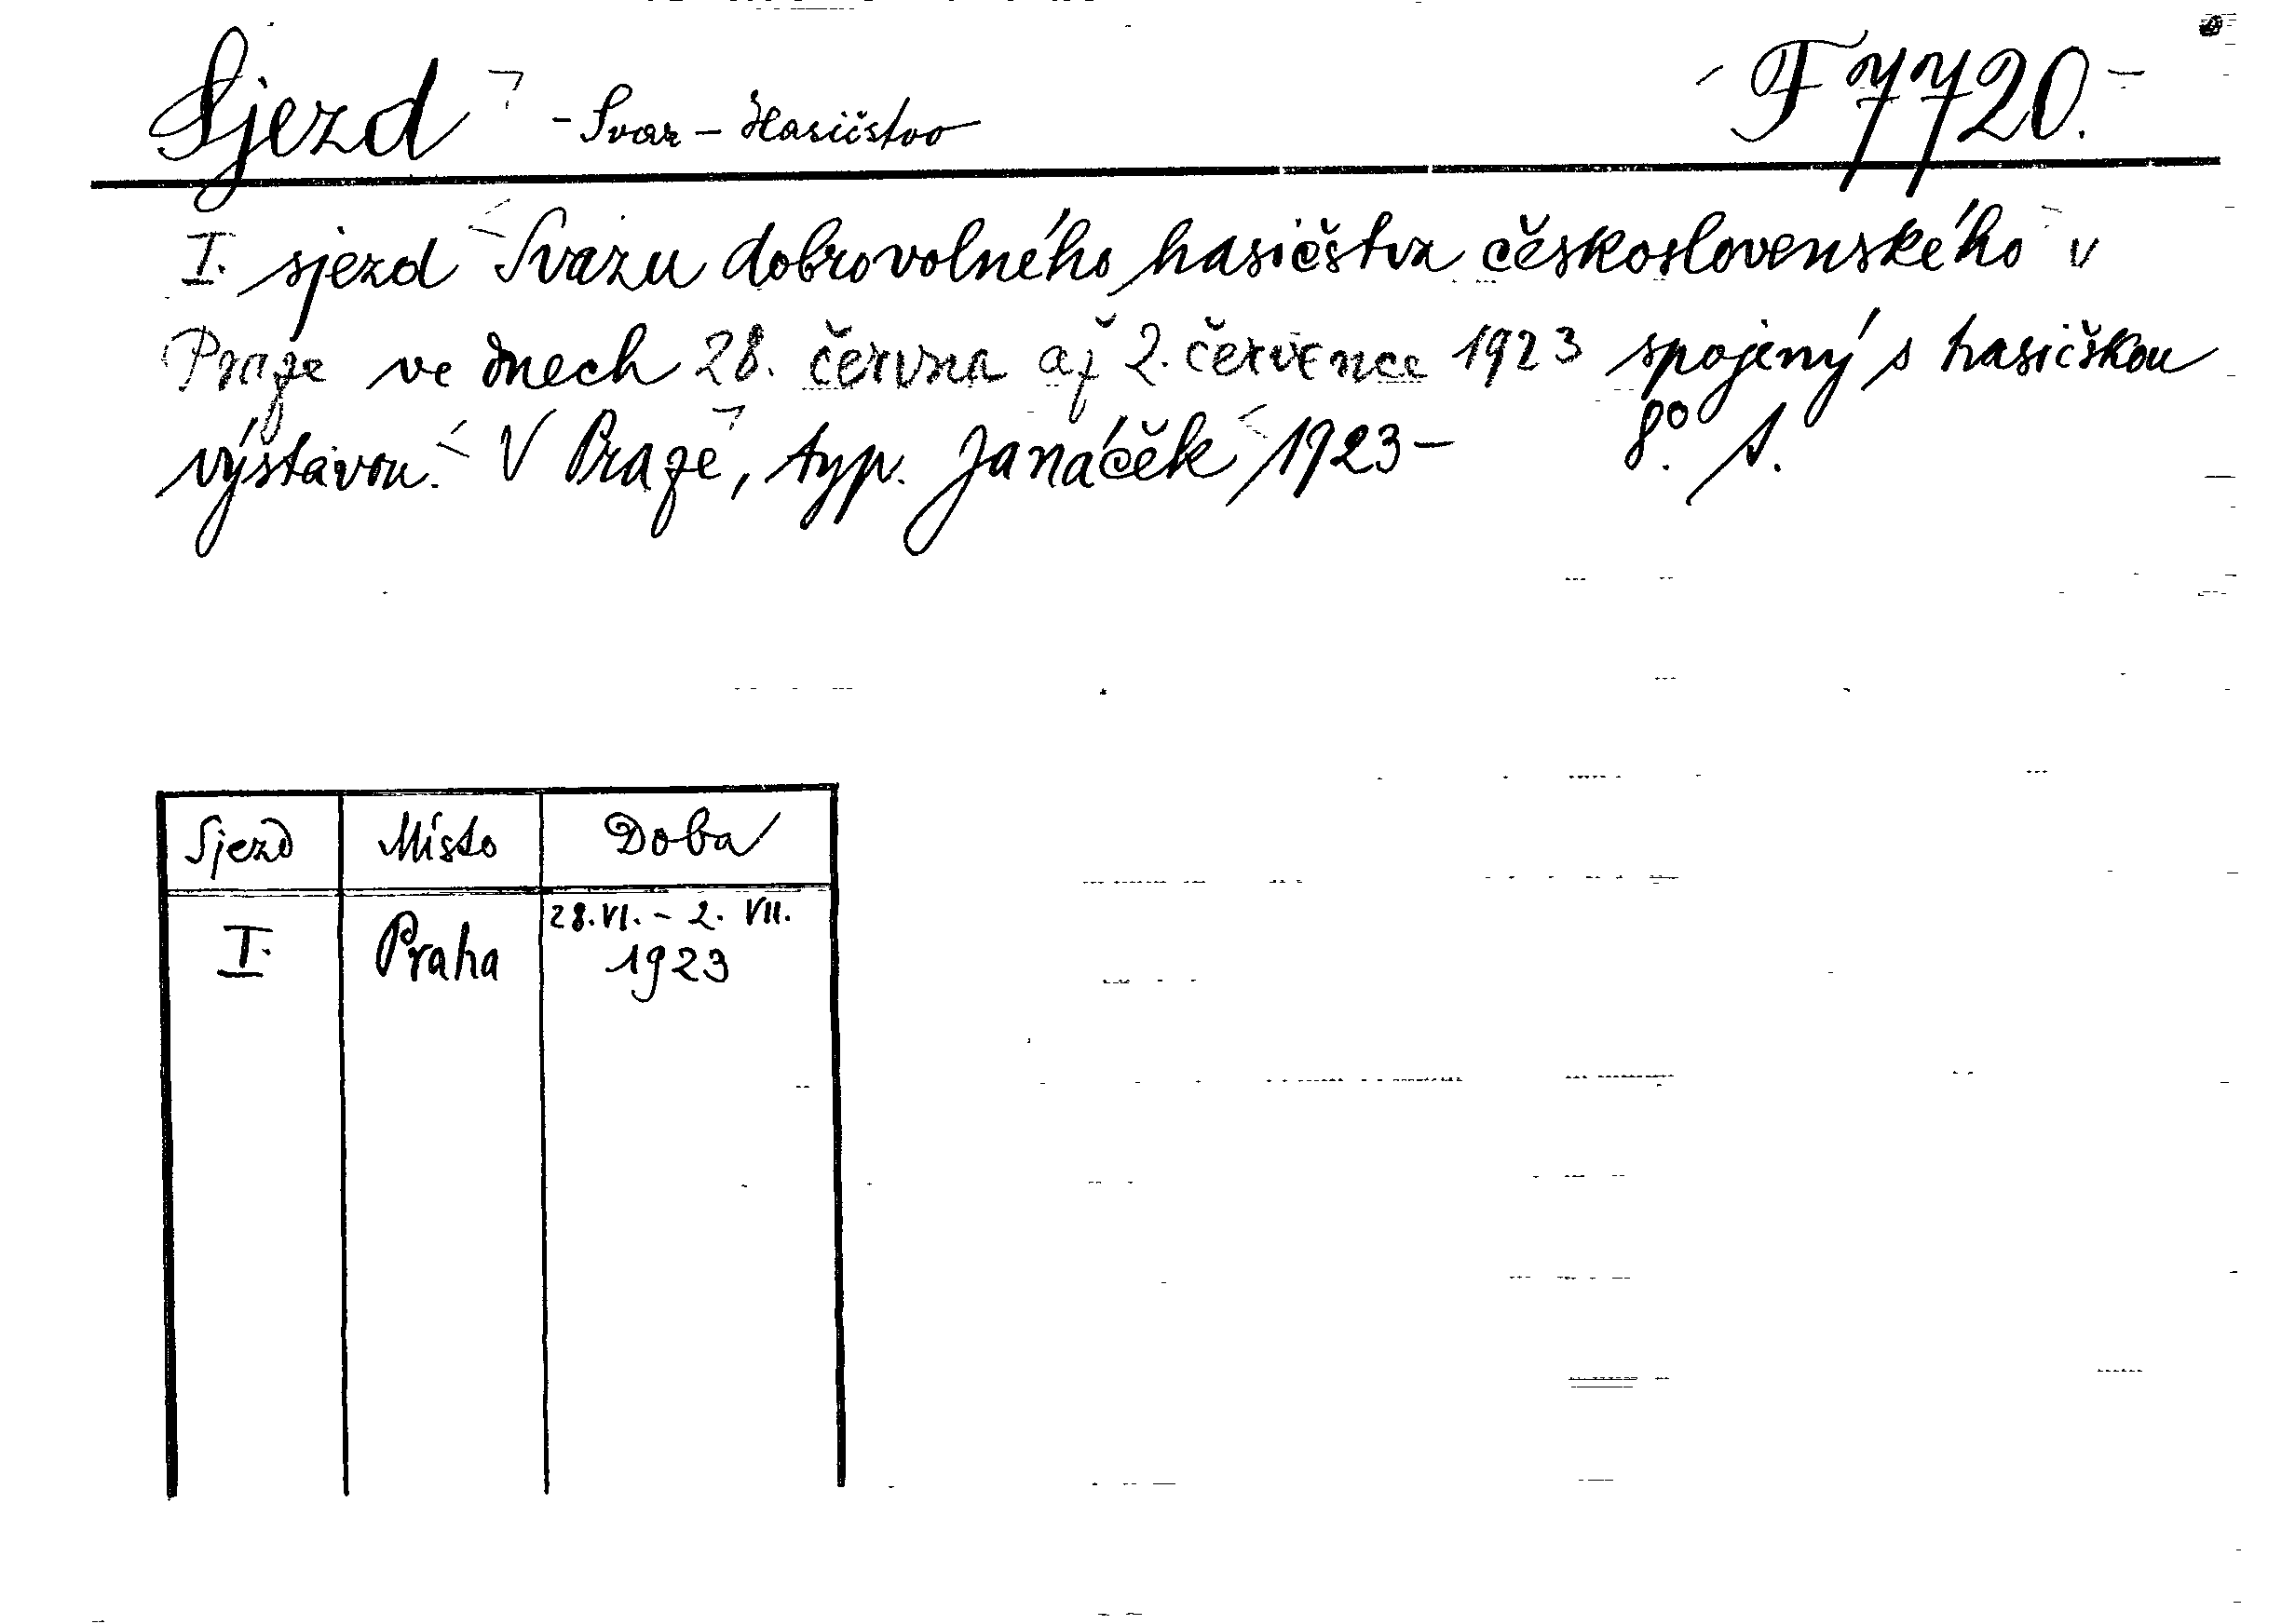 Sjezd - Svaz - Hasičstvo F 7720.
I. sjezd Svazu dobrovolného hasičstva československého v
Praze ve dnech 28. června až 2. července 1923 spojený s hasičskou
výstavou. V Praze, typ. Janáček 1923- 8º. s.
Sjezd Místo Doba
I. Praha 28.VI. - 2. VII.
1923